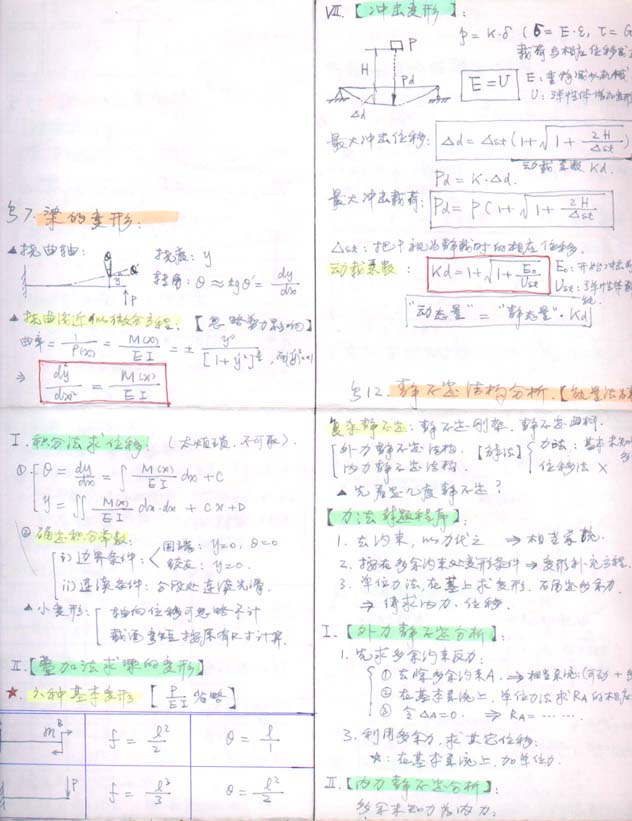 §7. 梁的变形:
▲挠曲轴:
挠度: y
转角: θ ≈ tgθ' = dy/dx
θ θ'
y
P
▲挠曲线近似微分方程. 【忽略剪力影响】
曲率 = 1/ρ(x) = M(x)/EI = ± y''/[1+y'²]^(3/2)
⇒ d²y/dx² = M(x)/EI
I. 积分法求位移: (太烦琐. 不可取).
① θ = dy/dx = ∫ M(x)/EI dx + C
y = ∬ M(x)/EI dx·dx + Cx + D
② 确定积分常数:
i) 边界条件: 固端: y=0, θ=0
铰支: y=0.
ii) 连续条件: 分段处连续光滑.
▲小变形: 轴向位移可忽略不计
截面弯矩按原有尺寸计算.
II. 【叠加法求梁的变形】
★. 六种基本变形 【P/EI 省略】
m B
f = l²/2
θ = l/1
P
f = l³/3
θ = l²/2
VII. 【冲击变形】:
P = K·δ (σ = E·ε, τ = G
载荷与相应位移成
P
H
Pd
Δd
E = U
E:
U: 弹性体
最大冲击位移: Δd = Δst (1+√(1 + 2H/Δst))
动载系数 Kd.
Pd = K·Δd.
最大冲击载荷: Pd = P(1+√(1 + 2H/Δst))
Δst: 把P视为静载时的相应位移.
动载系数: Kd = 1+√(1 + E₀/Ust)
E₀: 开始冲击
Ust:
"动态量" = "静态量"·Kd
§12. 静不定结构分析. 【
复杂静不定: 静不定刚架. 静不定曲杆.
外力静不定结构.
内力静不定结构.
【解法】 力法: 基本未知
位移法 ×
▲先看是几度静不定?
【力法解题程序】:
1. 去约束, 以力代之 ⇒ 相当系统.
2. 按在多余约束处变形条件 ⇒ 变形补充方程.
3. 单位力法, 在基上求变形. 不确定多余力.
⇒ 待求内力. 位移.
I. 【外力静不定分析】:
1. 先求多余约束反力:
① 去除多余约束A. ⇒ 相当系统:
② 在基本系统上, 单位力法求RA的相应
③ 令ΔA=0. ⇒ RA = ……
3. 利用多余力, 求其它位移:
★: 在基本系统上, 加单位力.
II. 【内力静不定分析】:
多余未知力为内力: